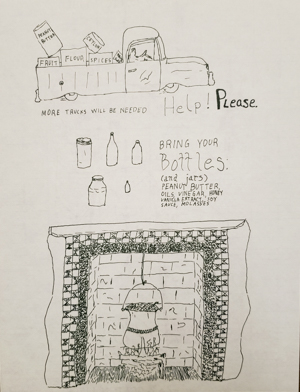 PEANUT
BUTTER
FRUIT FLOUR SPICES
MORE TRUCKS WILL BE NEEDED
Help! Please.
BRING YOUR
Bottles:
(and jars)
PEANUT BUTTER,
OILS, VINEGAR, HONEY
VANILLA EXTRACT, SOY
SAUCE, MOLASSES